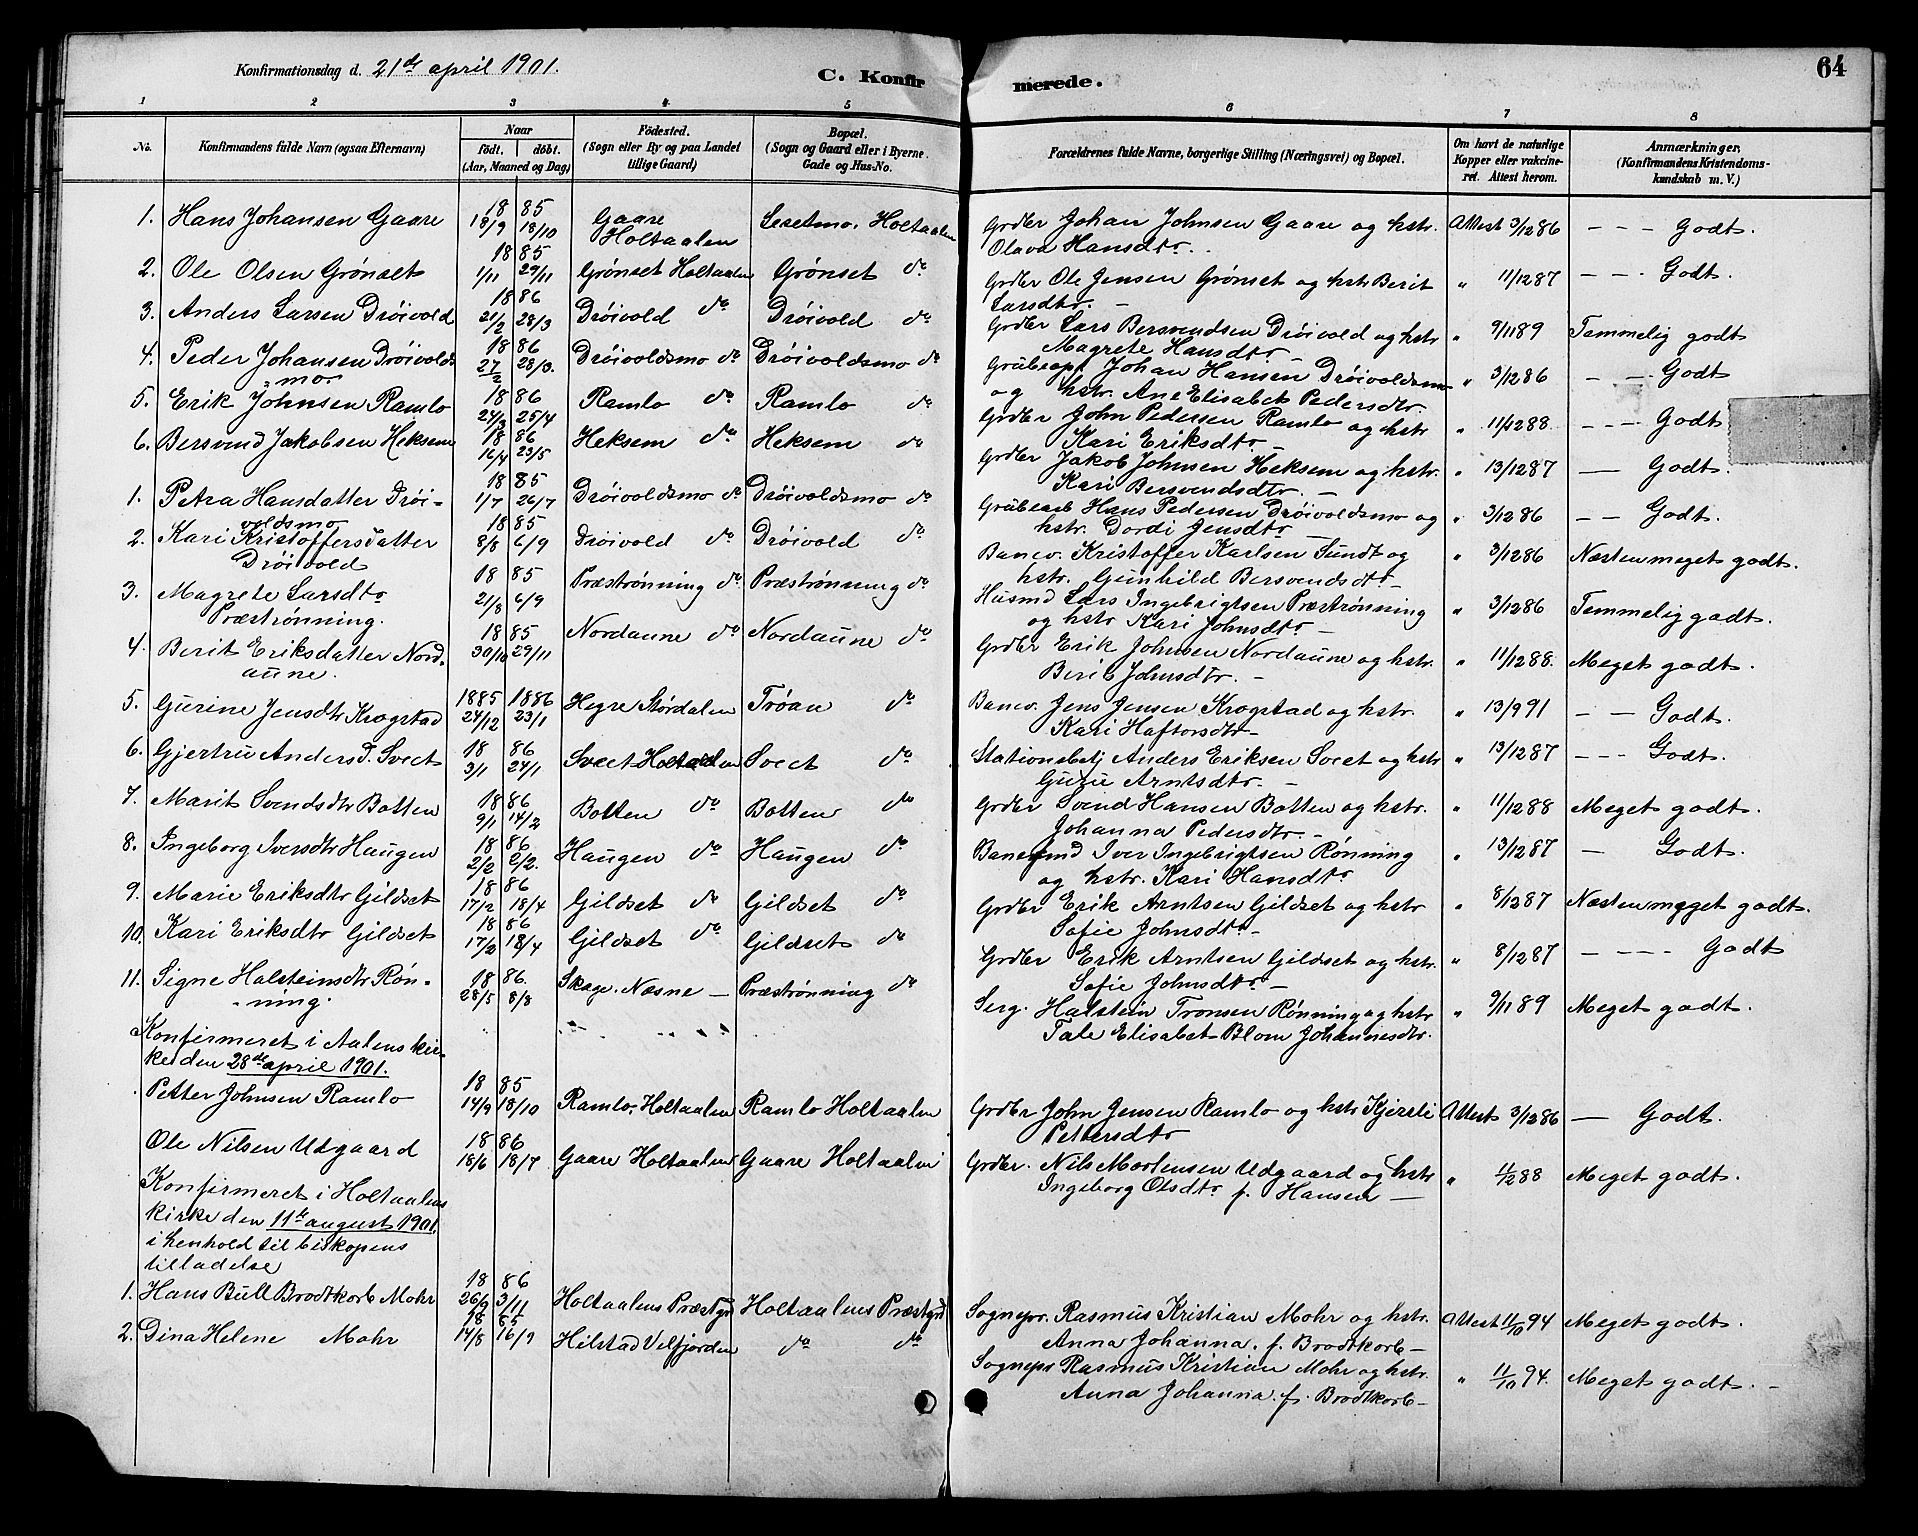 Konfirmationsdag d. 21de april 1901.
C. Konfirmerede.
64
1 2 3 4 5 6 7 8
No.
Konfirmandens fulde Navn (ogsaa Efternavn)
Naar
født. døbt.
(Aar, Maaned og Dag)
Födested.
(Sogn eller By og paa Landet
tillige Gaard)
Bopæl.
(Sogn og Gaard eller i Byerne
Gade og Hus-No.
Forældrenes fulde Navne, borgerlige Stilling (Næringsvei) og Bopæl.
Om havt de naturlige
Kopper eller vakcine-
ret. Attest herom.
Anmærkninger,
(Konfirmandens Kristendoms-
kundskab m. V.)
1. Hans Johansen Gaare 1885 18/9 18/10 Gaare Holtaalen Sesetmo. Holtaalen Grdbr Johan Johnsen Gaare og hstr. Olava Hansdtr. Attest 3/12 86 - - - Godt.
2. Ole Olsen Grønset 1885 1/11 29/11 Grønset Holtaalen Grønset do Grdbr Ole Jensen Grønset og hstr Berit Larsdtr. - " 11/12 87 - - - Godt.
3. Anders Larsen Drøivold 1886 21/2 28/3 Drøivold do Drøivold do Grdbr Lars Bersvendsen Drøivold og hstr Magrete Hansdtr - " 9/11 89 Temmelig godt
4. Peder Johansen Drøivolds mo 1886 27/2 28/3. Drøivoldsmo do Drøivoldsmo do Johan Hansen Drøivoldsmo og hstr. Ane Elisabet Pedersdtr. " 3/12 86 - - Godt
5. Erik Johnsen Ramlo 1886 25/4 Ramlo do Ramlo do Grdbr John Pedersen Ramlo og hstr Kari Eriksdtr - " 11/12 88. - - - Godt
6. Bersvend Jakobsen Heksem 1886 16/4 23/5 Heksem do Heksem do Grdbr Jakob Johnsen Heksem og hstr. Kari Bersvendsdtr. - " 13/12 87 - Godt.
1. Petra Hansdatter Drøi-voldsmo 1885 1/7 26/7 Drøivoldsmo do Drøivoldsmo do Grubearb Hans Pedersen Drøivoldsmo og hstr. Dordi Jensdtr - " 3/12 86 - - Godt.
2. Kari Kristoffersdatter Drøivold 1885 8/8 6/9 Drøivold do Drøivold do Banev. Kristoffer Karlsen Sundt og hstr. Gunhild Bersvendsdtr - " 3/12 86 Næsten meget godt.
3. Magrete Larsdtr Præstrønning. 1885 21/8 6/9 Præstrønning do Præstrønning do Husmd Lars Ingebrigtsen Præstrønning og hstr Kari Johnsdtr - " 3/12 86 Temmelig godt.
4. Berit Eriksdatter Nord-aune. 1885 30/10 29/11 Nordaune do Nordaune do Grdbr Erik Johnsen Nordaune og hstr. Berit Johnsdtr. - " 11/12 88. Meget godt.
5. Gurine Jensdtr Krogstad 1885 24/12 1886 23/1 Hegre Størdalen Trøan do Banev. Jens Jensen Krogstad og hstr. Kari Haftorsdtr - " 13/9 91 - - Godt.
6. Gjertru Anders d. Svect 1886 3/1 24/1 Svect Holtaalen Svect do Stationsbetj Anders Eriksen Svect og hstr Guru Arntsdtr. - " 13/12 87 - - - Godt.
7. Marit Svendsdtr Botten 1886 9/1 14/2 Botten do Botten do Grdbr Svend Hansen Botten og hstr. Johanna Pedersdtr. - " 11/12 88 Meget godt.
8. Ingeborg Iversdtr Haugen 1886 2/2 2/2. Haugen do Haugen do Iver Ingebrigtsen Rønning og hstr. Kari Hansdtr " 13/12 87 - Godt.
9. Marie Eriksdtr Gildset 1886 17/2 18/4 Gildset do Gildset do Grdbr Erik Arntsen Gildset og hstr Sofie Johnsdtr - " 8/12 87 Næsten meget godt.
10. Kari Eriksdtr Gildset 1886 17/2 18/4 Gildset do Gildset do Grdbr Erik Arntsen Gildset og hstr. Sofie Johnsdtr. - " 8/12 87 - - - - Godt
11. Signe Halsteinsdtr Røn-ning. 1886. 28/5 8/8 Skage. Næsne - Præstrønning do Serg. Halstein Tronsen Rønning og hstr Tale Elisabet Blom Johannesdtr. " 9/11 89 Meget godt.
Konfirmeret i Aalens kir-
ke den 28de april 1901.
Petter Johnsen Ramlo 1885 14/9 18/10 Ramlo, Holtaalen Ramlo Holtaalen Grdbr John Jensen Ramlo og hstr Kjersti Pettersdtr Attest 3/12 86 - Godt.
Ole Nilsen Udgaard 1886 18/6 18/7 Gaare Holtaalen Gaare Holtaalen Grdbr. Nils Mortensen Udgaard og hstr Ingeborg Olsdtr f. Hansen - " 88 Meget godt.
Konfirmeret i Holtaalens
kirke den 11te august 1901.
i henhold til biskopens
tilladelse
1. Hans Bull Brodtkorb Mohr 1886 26/9 3/11 Holtaalens Præstgd Holtaalens Præstgd Sognepr. Rasmus Kristian Mohr og hstr. Anna Johanna. f. Brodtkorb - Attest 11/10 94 Meget godt.
2. Dina Helene Mohr 1885 14/8 16/9 Hilstad Velfjorden do do Sognepr Rasmus Kristian Mohr og hstr. Anna Johanna. f. Brodtkorb - " 11/10 94. Meget godt. -